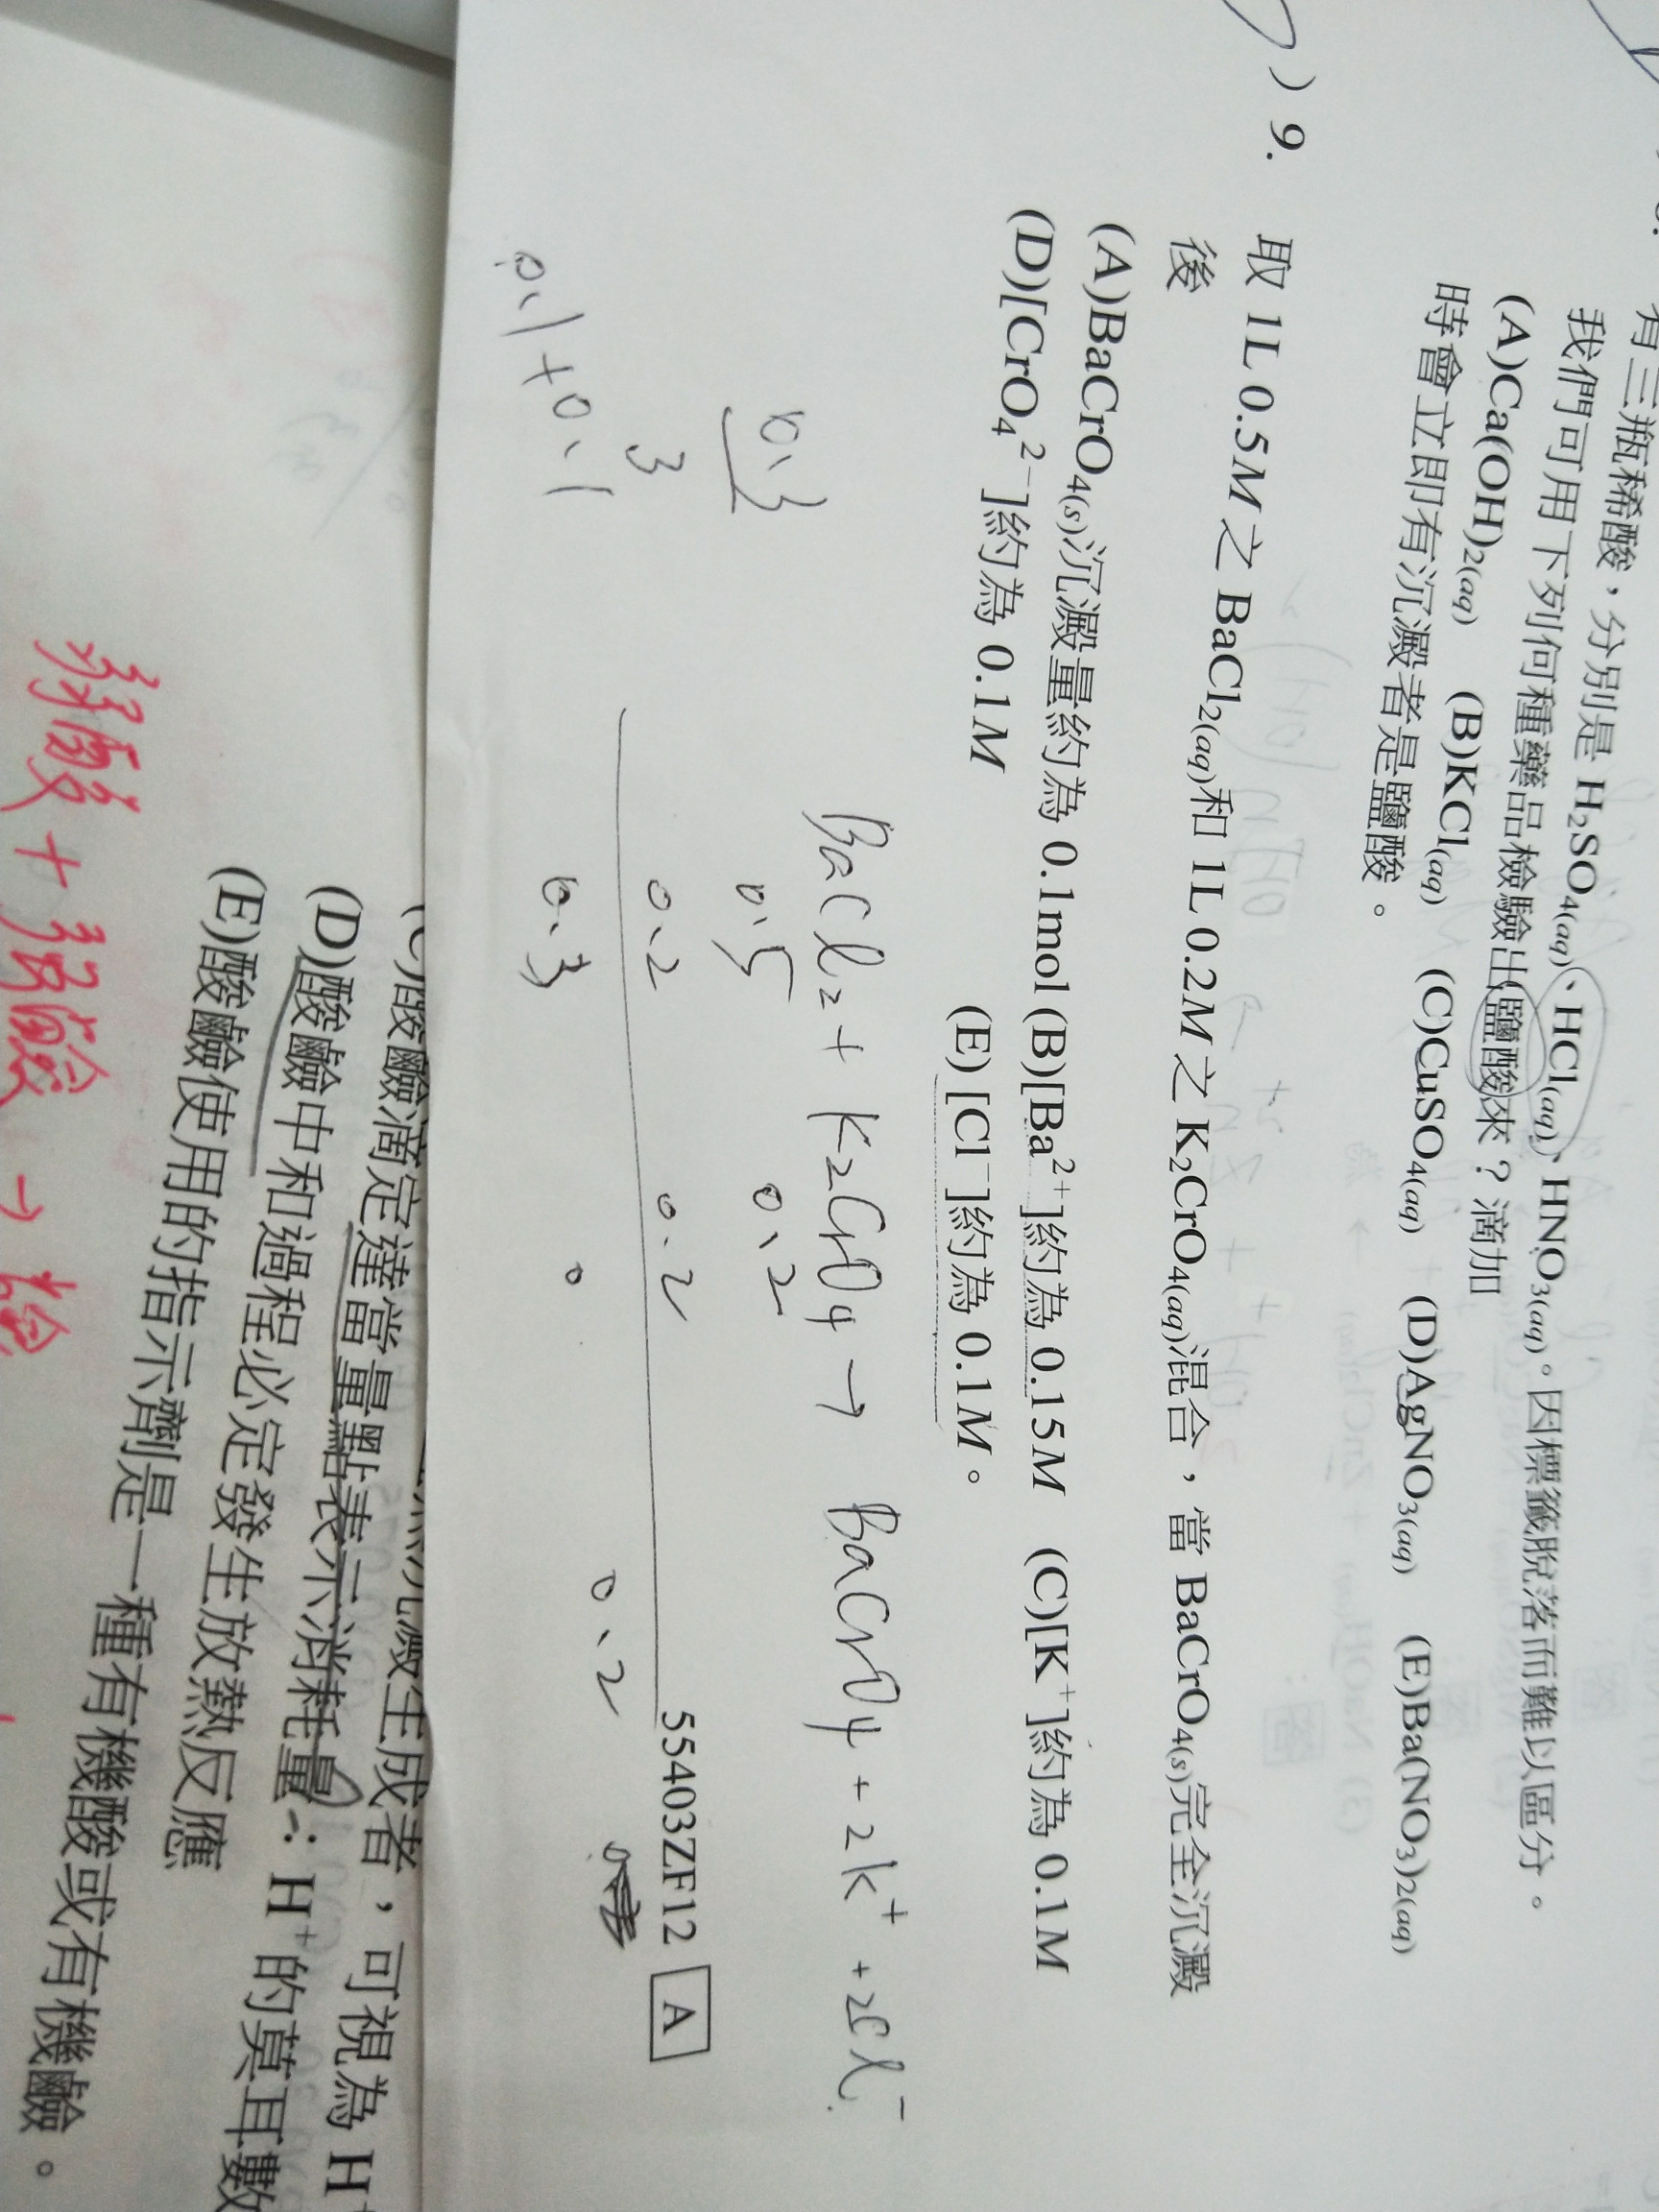 有三瓶稀酸，分別是 H₂SO₄(aq)、HCl(aq)、HNO₃(aq)。因標籤脫落而難以區分。
我們可用下列何種藥品檢驗出鹽酸來？滴加
(A)Ca(OH)₂(aq) (B)KCl(aq) (C)CuSO₄(aq) (D)AgNO₃(aq) (E)Ba(NO₃)₂(aq)
時會立即有沉澱者是鹽酸。
) 9. 取 1L 0.5M 之 BaCl₂(aq)和 1L 0.2M 之 K₂CrO₄(aq)混合，當 BaCrO₄(s)完全沉澱
後
(A)BaCrO₄(s)沉澱量約為 0.1mol (B)[Ba²⁺]約為 0.15M (C)[K⁺]約為 0.1M
(D)[CrO₄²⁻]約為 0.1M (E) [Cl⁻]約為 0.1M。
BaCl₂ + K₂CrO₄ → BaCrO₄ + 2K⁺ + 2Cl⁻
0.3 0.5 0.2
3 0.2 0.2
55403ZF12 A
0.1 + 0.1 0.3 0 0.2
(C)酸鹼滴定達當量點表示消耗量：H⁺ 的莫耳數
(D)酸鹼中和過程必定發生放熱反應
(E)酸鹼使用的指示劑是一種有機酸或有機鹼。
弱酸 + 強鹼 →